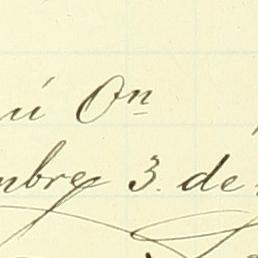 Oⁿ
mbre 3. de